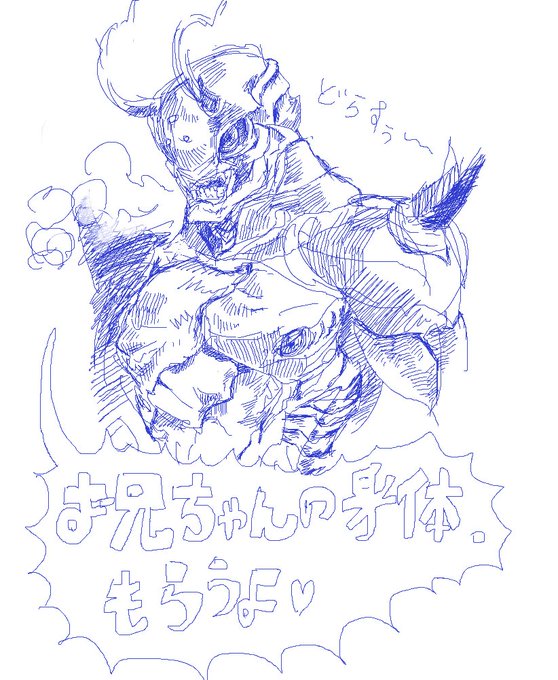 どらすぅ〜
お兄ちゃんの身体.
もらうよ♡